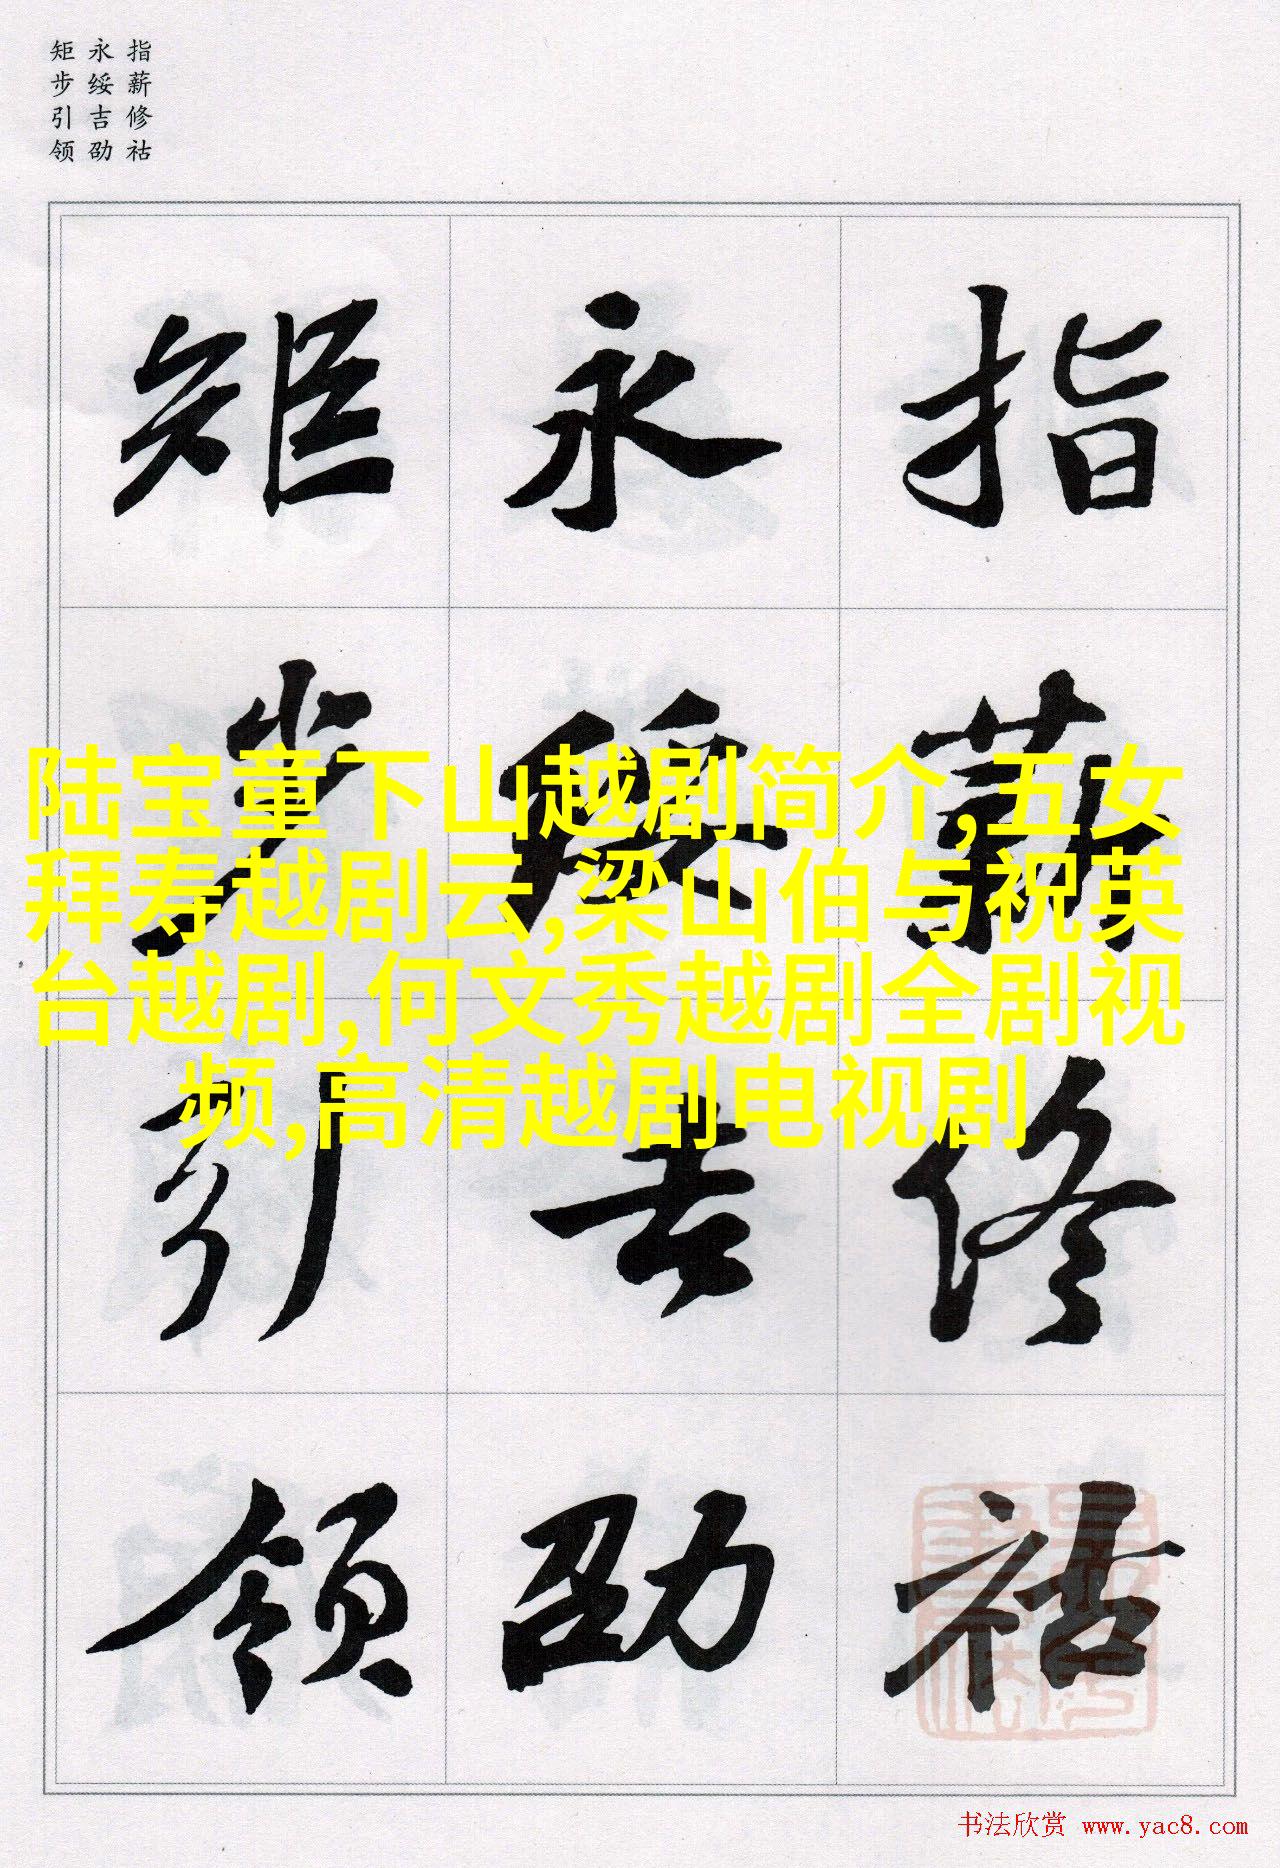 指薪修祜
永绥吉劭
矩步引领
指薪修祜
永绥吉劭
矩步引领
陆宝童下山越剧简介,五女
拜寿越剧云,梁山伯与祝英
台越剧,何文秀越剧全剧视
频,高清越剧电视剧
书法欣赏 www.yac8.com